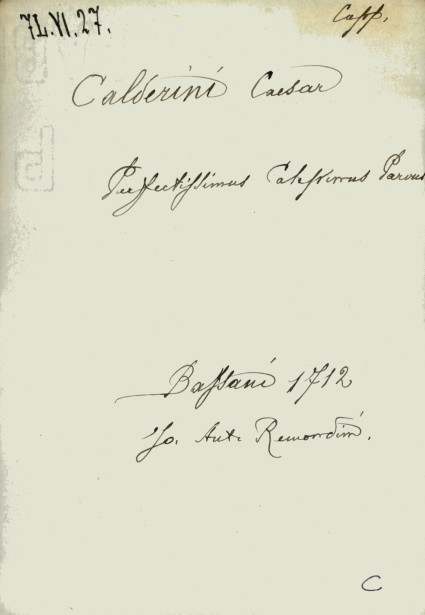 7L.VI.27.
Capp.
Calderini Caesar
Perfectissimus Calepinus Parvus
Bassani 1712
Jo. Ant. Remondini.
C